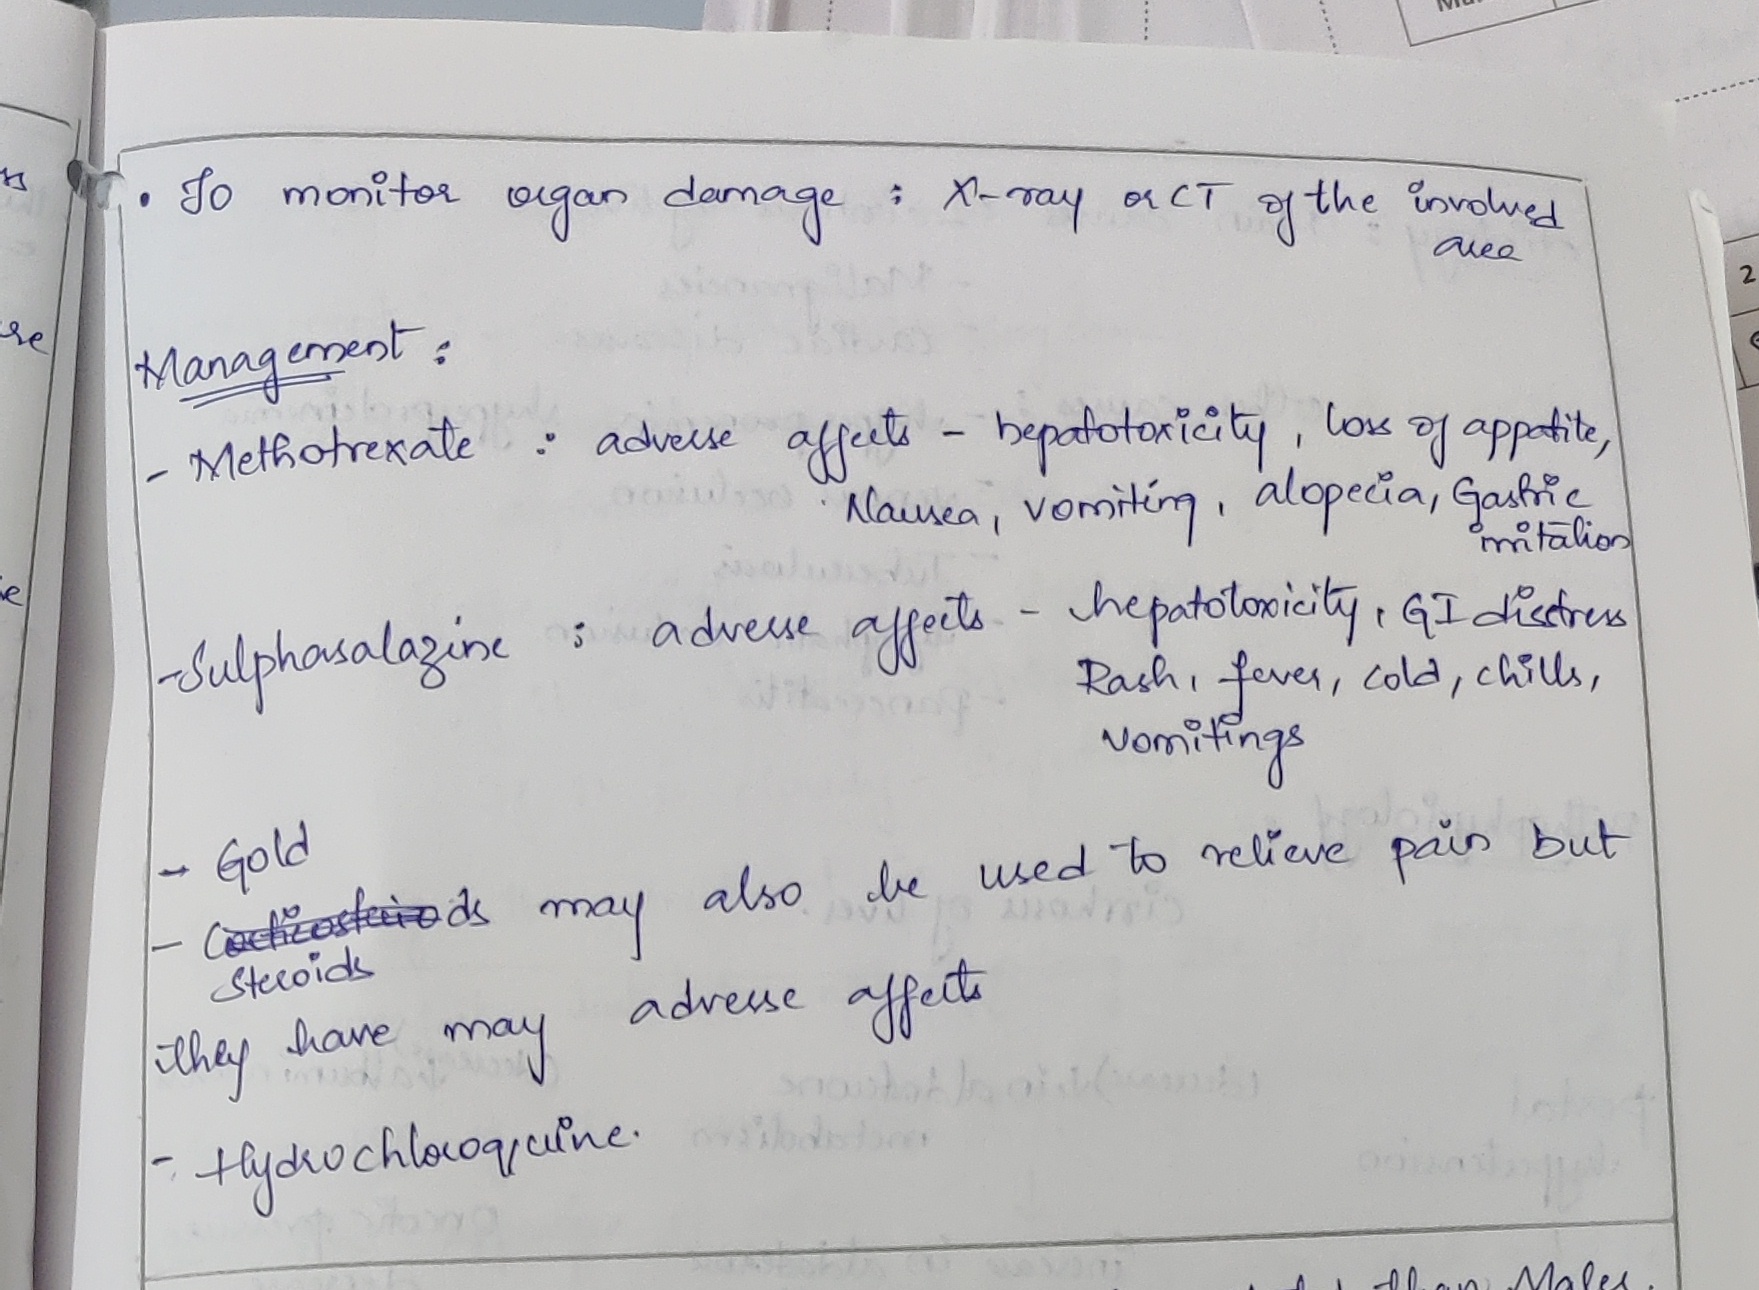 • To monitor organ damage : X-ray or CT of the involved
area
Management :
- Methotrexate : adverse affects - hepatotoxicity, loss of appatite,
Nausea, vomiting, alopecia, Gastric
irritation
- Sulphasalazine : adverse affects - hepatotoxicity, GI disstress
Rash, fever, cold, chills,
vomitings
- Gold
- Corticosteroids may also be used to relieve pain but
Steroids
they have may adverse affects
- Hydrochloroquine.
than Males.
2